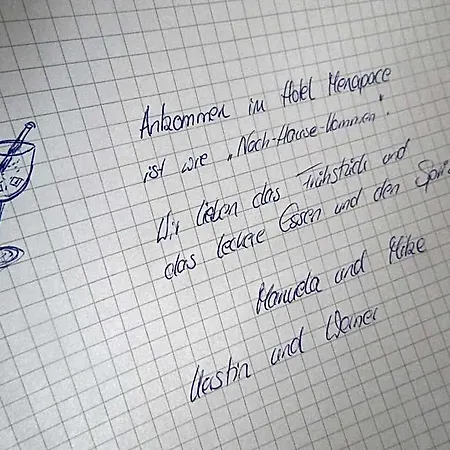 Ankommen im Hotel Menapace
ist wie „Nach-Hause-kommen".
Wir lieben das Frühstück und
das leckere Essen und den
Manuela und Mike
und Werner